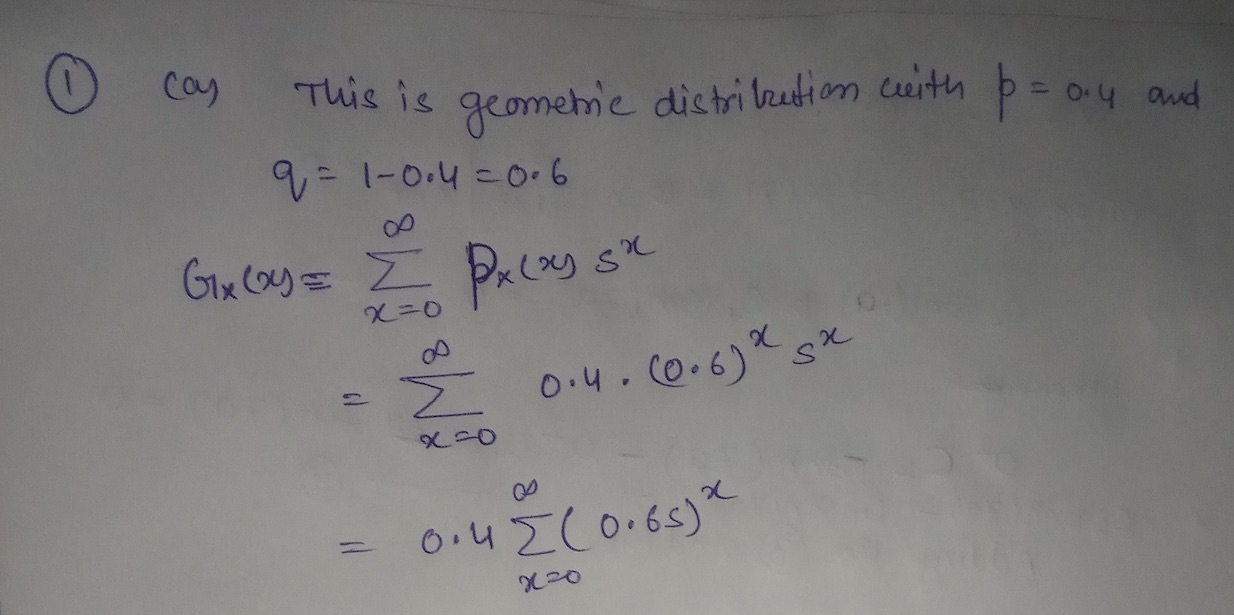 ① (a) This is geometric distribution with p = 0.4 and
q = 1-0.4 = 0.6
Gx(x) = ∞ Σ x=0 px(x) s^x
= ∞ Σ x=0 0.4 . (0.6)^x s^x
= 0.4 ∞ Σ x=0 (0.6s)^x